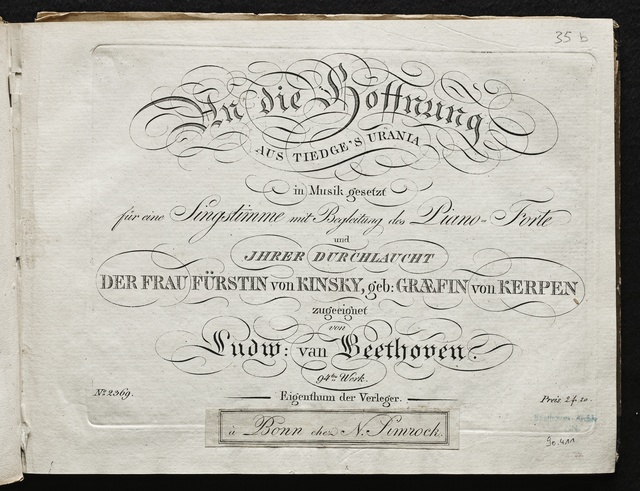 35 b
An die Hoffnung
AUS TIEDGE'S URANIA
in Musik gesetzt
für eine Singstimme mit Begleitung des Piano-Forte
und
JHRER DURCHLAUCHT
DER FRAU FÜRSTIN von KINSKY, geb: GRÆFIN von KERPEN
zugeeignet
von
Ludw: van Beethoven.
94tes Werk.
No. 2369.
Eigenthum der Verleger.
Preis 2 f.
à Bonn chez N. Simrock.